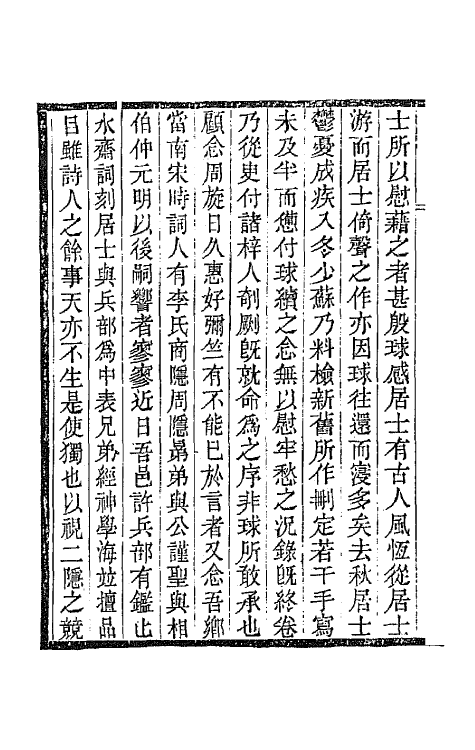 士所以慰藉之者甚殷球感居士有古人風恆從居士
游而居士倚聲之作亦因球往還而寖多矣去秋居士
鬱憂成疾入冬少蘇乃料檢新舊所作刪定若干手寫
未及半而憊付球續之念無以慰牢愁之況錄旣終卷
乃從臾付諸梓人剞劂旣就命爲之序非球所敢承也
顧念周旋日久惠好彌竺有不能已於言者又念吾鄉
當南宋時詞人有李氏商隱周隱昆弟與公謹聖與相
伯仲元明以後嗣響者寥寥近日吾邑許兵部有鑑止
水齋詞刻居士與兵部爲中表兄弟經神學海竝擅品
目雖詩人之餘事天亦不生是使獨也以視二隱之競